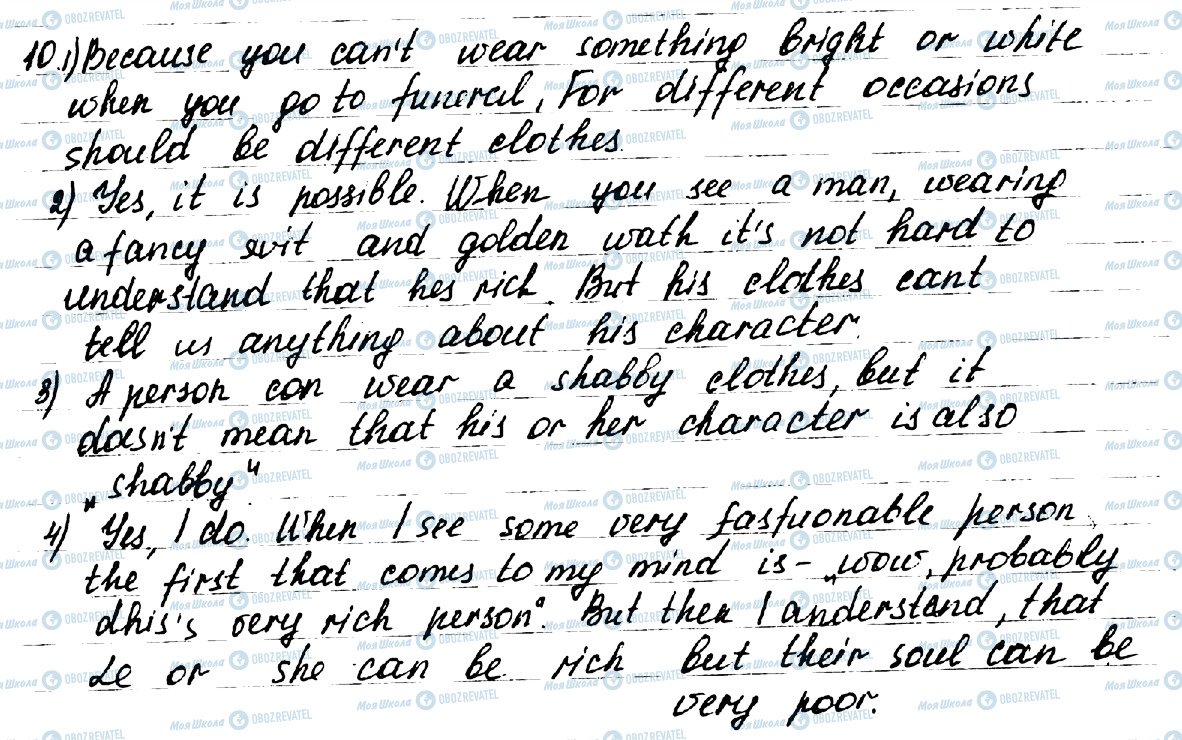 10.1) Because you can't wear something bright or white
when you go to funeral, For different occasions
should be different clothes
2) Yes, it is possible. When you see a man, wearing
a fancy suit and golden wath it's not hard to
understand that hes rich. But his clothes cant
tell us anything about his character.
3) A person can wear a shabby clothes, but it
doasn't mean that his or her character is also
„shabby"
4) Yes, I do. When I see some very fasfuonable person,
the first that comes to my mind is - „wow, probably
dhis's very rich person". But then I anderstand, that
Le or she can be rich but their soul can be
very poor.